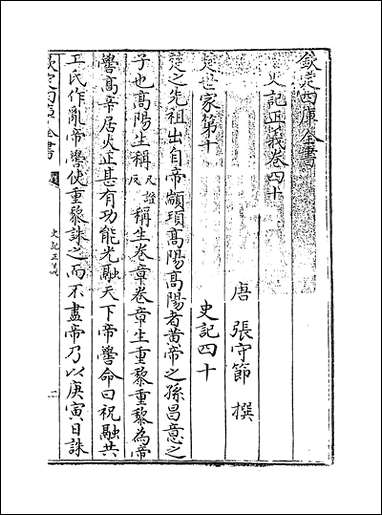 欽定四庫全書
史記正義卷四十
唐 張守節 撰
楚世家第十 史記四十
楚之先祖出自帝顓頊髙陽髙陽者黄帝之孫昌意之
子也髙陽生稱尺證反稱生卷章卷章生重黎重黎為帝
嚳髙辛居火正甚有功能光融天下帝嚳命曰祝融共
工氏作亂帝嚳使重黎誅之而不盡帝乃以庚寅日誅
欽定四庫全書
史記正義